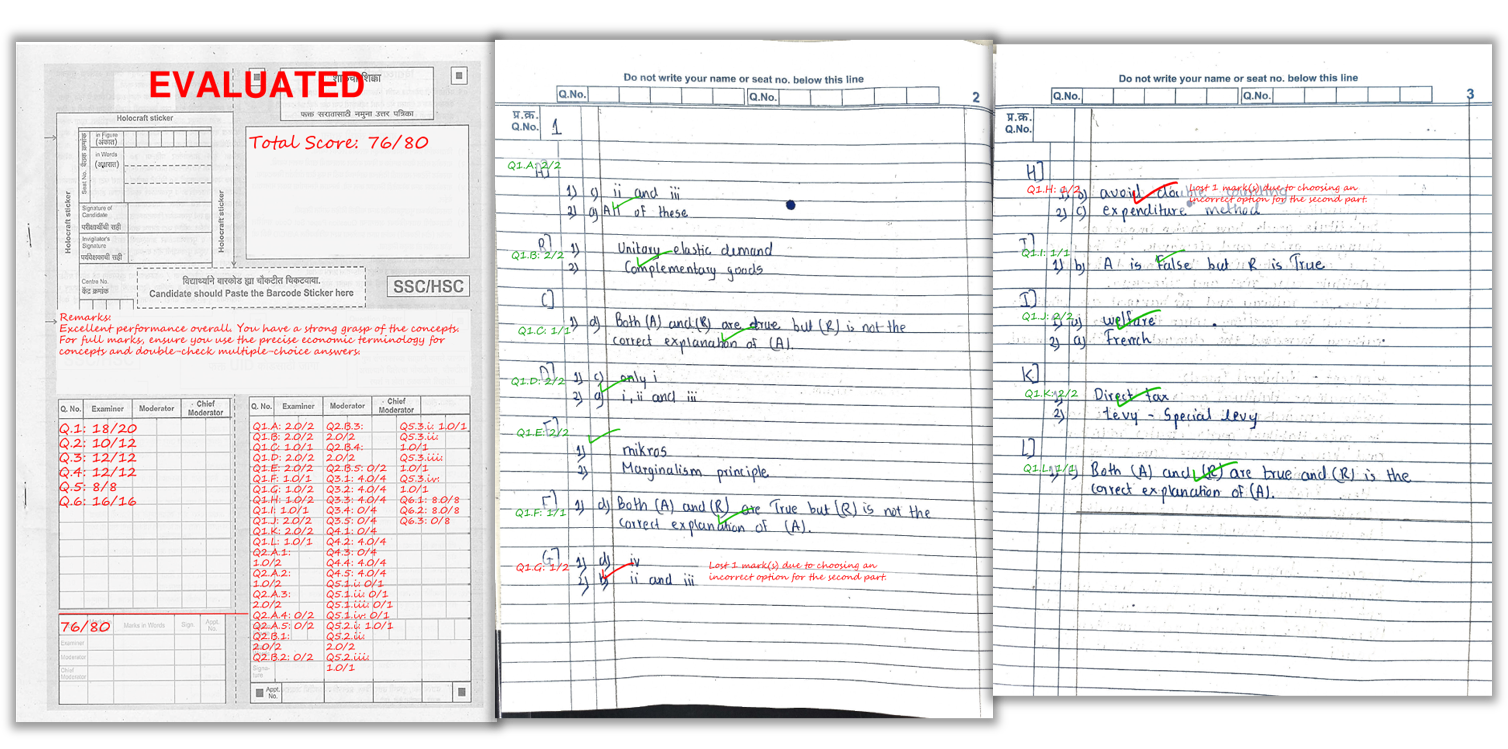 EVALUATED
फक्त सरावासाठी नमुना उत्तर पत्रिका
Holocraft sticker
in Figure
(अंकात)
in Words
(अक्षरात)
Seat No.
Holocraft sticker
Holocraft sticker
Signature of
Candidate
परीक्षार्थीची सही
Invigilator's
Signature
पर्यवेक्षकाची सही
Centre No.
केंद्र क्रमांक
Total Score: 76/80
विद्यार्थ्याने बारकोड ह्या चौकटीत चिकटवावा.
Candidate should Paste the Barcode Sticker here
SSC/HSC
Remarks:
Excellent performance overall. You have a strong grasp of the concepts.
For full marks, ensure you use the precise economic terminology for
concepts and double-check multiple-choice answers.
Q. No. Examiner Moderator Chief Moderator
Q.1: 18/20
Q.2: 10/12
Q.3: 12/12
Q.4: 12/12
Q.5: 8/8
Q.6: 16/16
76/80
Marks in Words Sign Appt. No.
Examiner
Moderator
Chief
Moderator
Q. No. Examiner Moderator Chief Moderator
Q1.A: 2.0/2 Q2.B.3: Q5.3.i: 1.0/1
Q1.B: 2.0/2 2.0/2 Q5.3.ii:
Q1.C: 1.0/1 Q2.B.4: 1.0/1
Q1.D: 2.0/2 2.0/2 Q5.3.iii:
Q1.E: 2.0/2 Q2.B.5: 0/2 1.0/1
Q1.F: 1.0/1 Q3.1: 4.0/4 Q5.3.iv:
Q1.G: 1.0/2 Q3.2: 4.0/4 1.0/1
Q1.H: 1.0/2 Q3.3: 4.0/4 Q6.1: 8.0/8
Q1.I: 1.0/1 Q3.4: 0/4 Q6.2: 8.0/8
Q1.J: 2.0/2 Q3.5: 0/4 Q6.3: 0/8
Q1.K: 2.0/2 Q4.1: 0/4
Q1.L: 1.0/1 Q4.2: 4.0/4
Q2.A.1: Q4.3: 0/4
1.0/2 Q4.4: 4.0/4
Q2.A.2: Q4.5: 4.0/4
1.0/2 Q5.1.i: 0/1
Q2.A.3: Q5.1.ii: 0/1
2.0/2 Q5.1.iii: 0/1
Q2.A.4: 0/2 Q5.1.iv: 0/1
Q2.A.5: 0/2 Q5.2.i: 1.0/1
Q2.B.1: Q5.2.ii:
2.0/2 2.0/2
Q2.B.2: 0/2 Q5.2.iii:
1.0/1
Signature
Appt.
No.
Do not write your name or seat no. below this line
Q.No. Q.No. 2
प्र.क्र.
Q.No. 1
Q1.A: 2/2
A]
1) c) ii and iii
2) d) All of these
Q1.B: 2/2
B] 1) Unitary elastic demand
2) Complementary goods
C]
Q1.C: 1/1
1) d) Both (A) and (R) are true but (R) is not the
correct explanation of (A).
Q1.D: 2/2
D] 1) c) only i
2) d) i, ii and iii
Q1.E: 2/2
E]
1) mikros
2) Marginalism principle
Q1.F: 1/1
F] 1) d) Both (A) and (R) are True but (R) is not the
correct explanation of (A).
Q1.G: 1/2
G] 1) d) iv
2) b) ii and iii
Lost 1 mark(s) due to choosing an
incorrect option for the second part.
Do not write your name or seat no. below this line
Q.No. Q.No. 3
प्र.क्र.
Q.No.
H]
Q1.H: 1/2
1) b) avoid double counting
2) c) expenditure method
Lost 1 mark(s) due to choosing an
incorrect option for the second part.
I]
Q1.I: 1/1
1) b) A is False but R is True
J]
Q1.J: 2/2
welfare
2) a) French
K]
Q1.K: 2/2
Direct tax
2) levy - Special levy
L]
Q1.L: 1/1
Both (A) and (R) are true and (R) is the
correct explanation of (A).